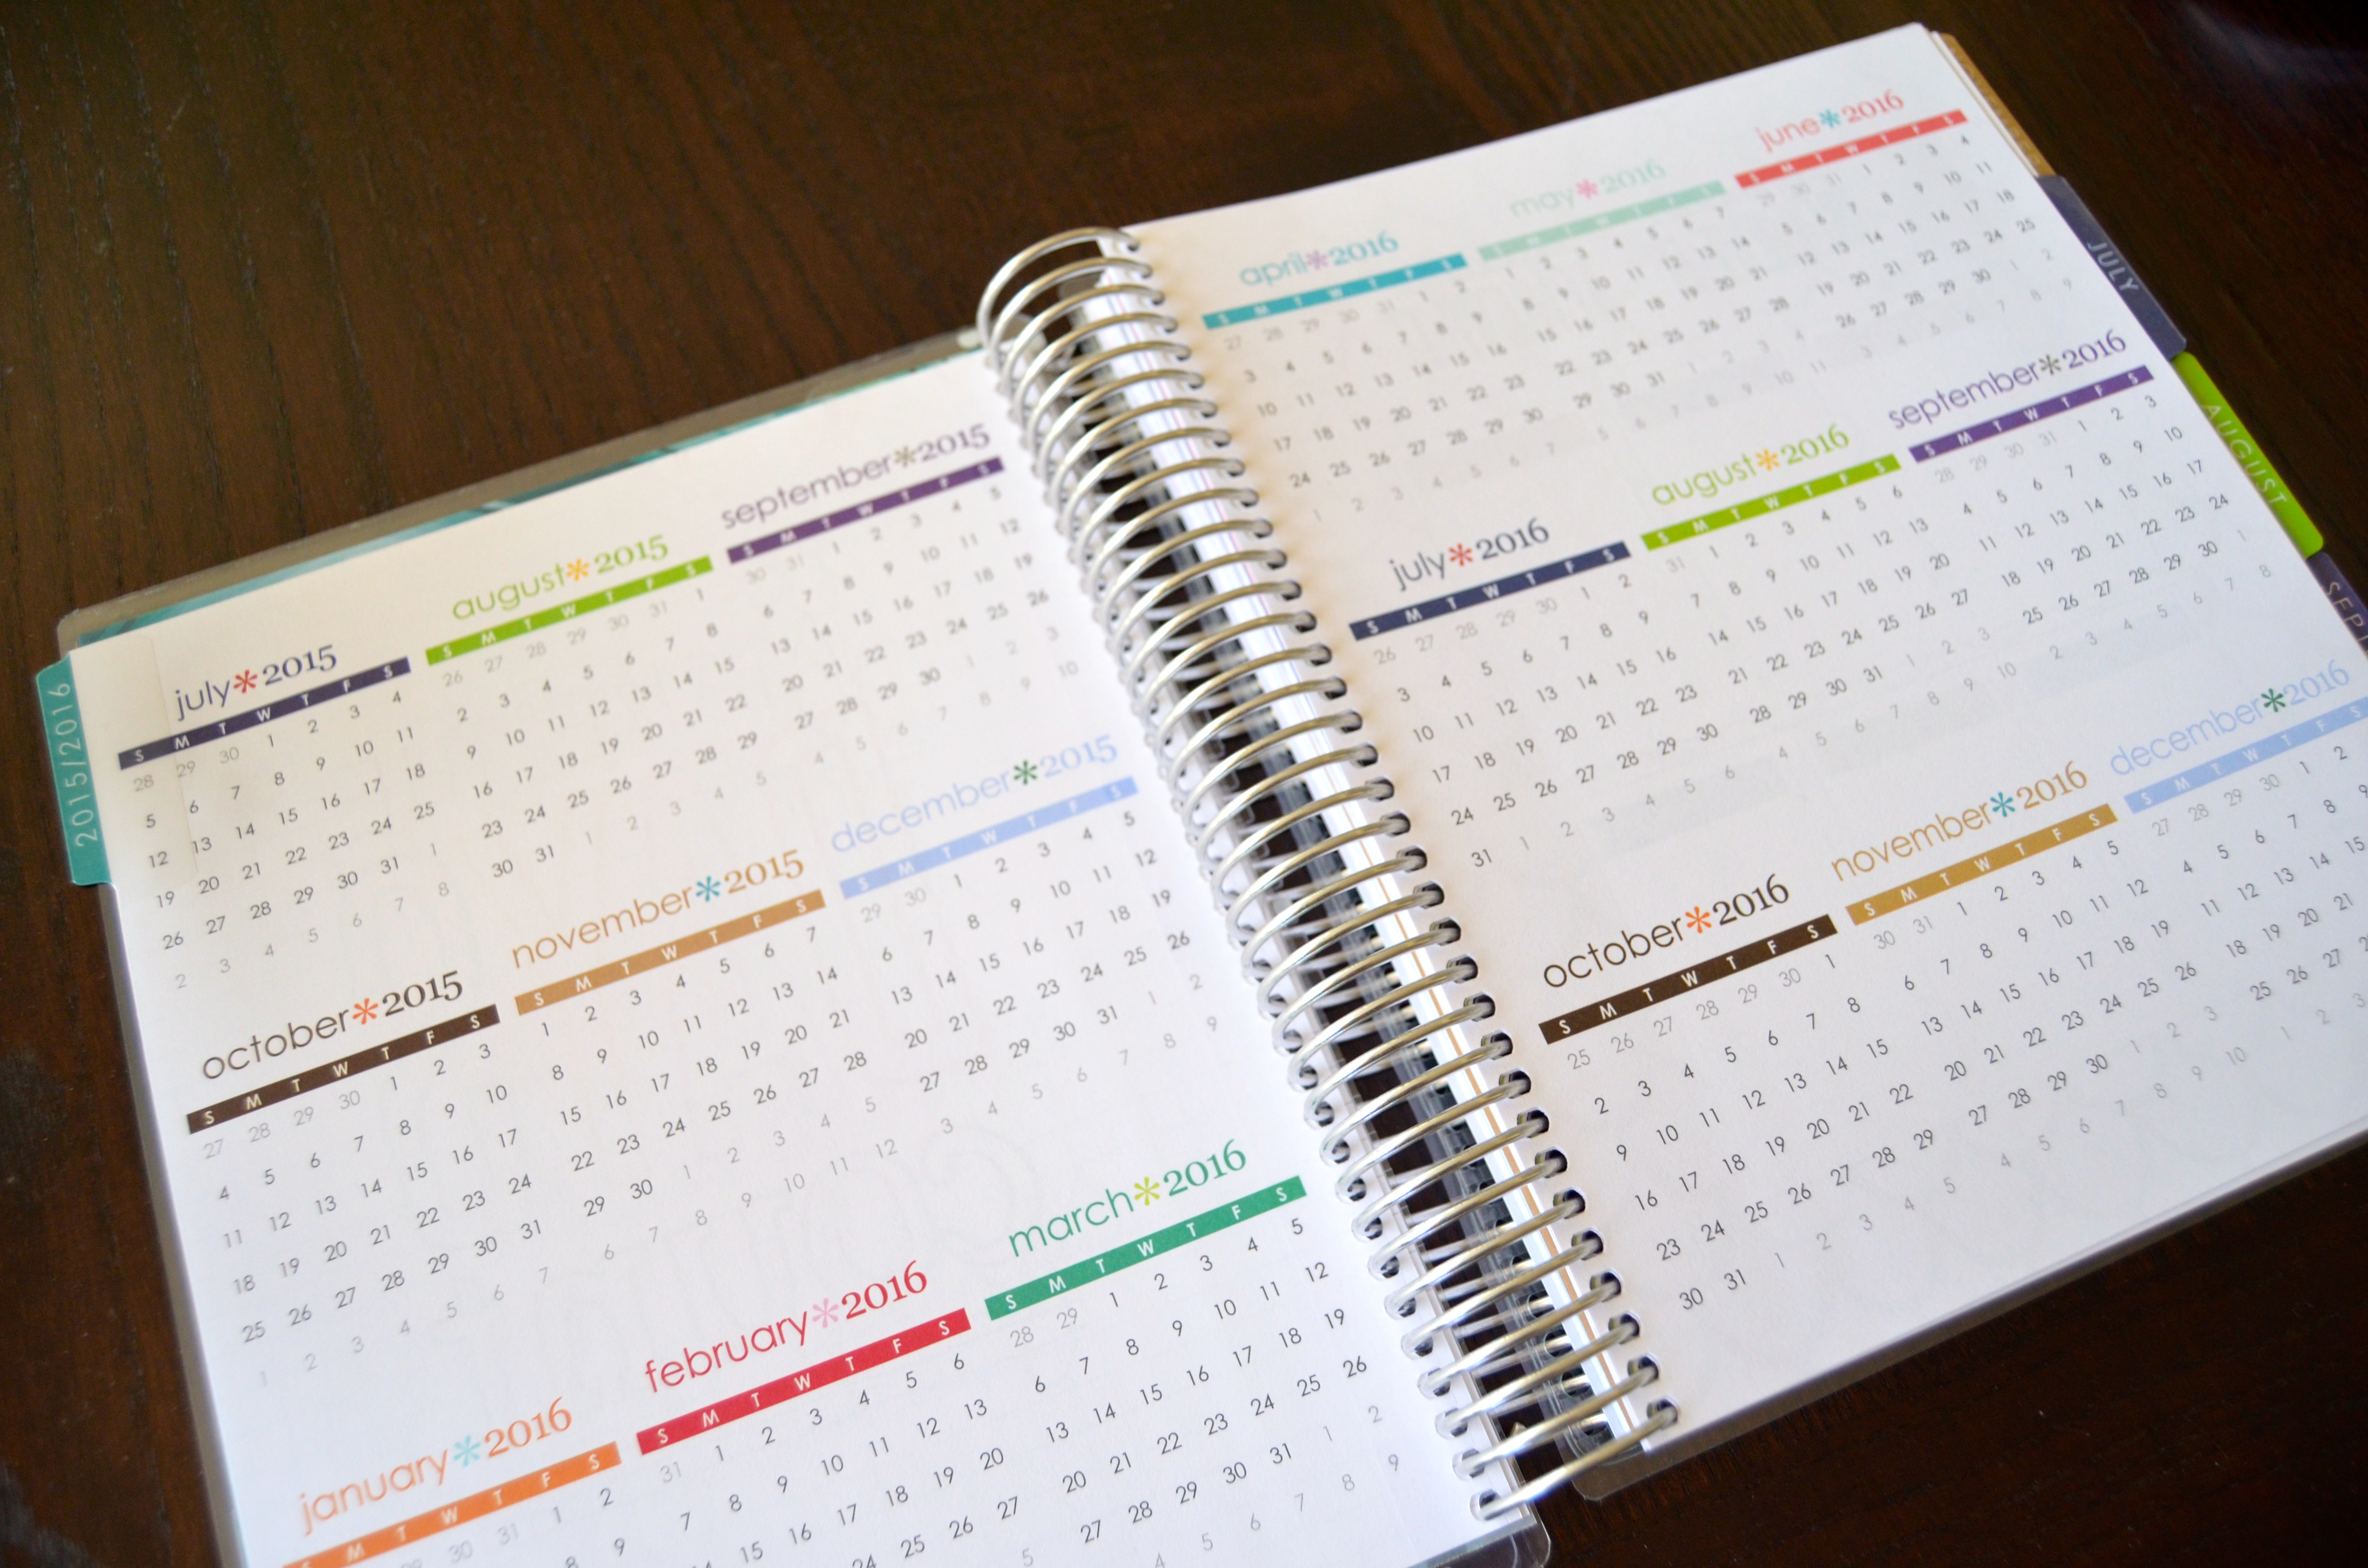 2015/2016
july*2015
S M T W T F S
28 29 30 1 2 3 4
5 6 7 8 9 10 11
12 13 14 15 16 17 18
19 20 21 22 23 24 25
26 27 28 29 30 31 1
2 3 4 5 6 7 8
august*2015
S M T W T F S
26 27 28 29 30 31 1
2 3 4 5 6 7 8
9 10 11 12 13 14 15
16 17 18 19 20 21 22
23 24 25 26 27 28 29
30 31 1 2 3 4 5
september*2015
S M T W T F S
30 31 1 2 3 4 5
6 7 8 9 10 11 12
13 14 15 16 17 18 19
20 21 22 23 24 25 26
27 28 29 30 1 2 3
4 5 6 7 8 9 10
october*2015
S M T W T F S
27 28 29 30 1 2 3
4 5 6 7 8 9 10
11 12 13 14 15 16 17
18 19 20 21 22 23 24
25 26 27 28 29 30 31
1 2 3 4 5 6 7
november*2015
S M T W T F S
1 2 3 4 5 6 7
8 9 10 11 12 13 14
15 16 17 18 19 20 21
22 23 24 25 26 27 28
29 30 1 2 3 4 5
6 7 8 9 10 11 12
december*2015
S M T W T F S
29 30 1 2 3 4 5
6 7 8 9 10 11 12
13 14 15 16 17 18 19
20 21 22 23 24 25 26
27 28 29 30 31 1 2
3 4 5 6 7 8 9
january*2016
S M T W T F S
29 30 31 1 2
8 9
february*2016
S M T W T F S
31 1 2 3 4 5 6
7 8 9 10 11 12 13
15 16 17 18 19 20
24 25 26 27
5
march*2016
S M T W T F S
28 29 1 2 3 4 5
6 7 8 9 10 11 12
13 14 15 16 17 18 19
20 21 22 23 24 25 26
27 28 29 30 31 1 2
4 5 6 7 8 9
april*2016
S M T W T F S
27 28 29 30 31 1 2
3 4 5 6 7 8 9
10 11 12 13 14 15 16
17 18 19 20 21 22 23
24 25 26 27 28 29 30
1 2 3 4 5 6 7
may*2016
S M T W T F S
1 2 3 4 5 6 7
8 9 10 11 12 13 14
15 16 17 18 19 20 21
22 23 24 25 26 27 28
29 30 31 1 2 3 4
5 6 7 8 9 10 11
june*2016
S M T W T F S
29 30 31 1 2 3 4
5 6 7 8 9 10 11
12 13 14 15 16 17 18
19 20 21 22 23 24 25
26 27 28 29 30 1 2
3 4 5 6 7 8 9
july*2016
S M T W T F S
26 27 28 29 30 1 2
3 4 5 6 7 8 9
10 11 12 13 14 15 16
17 18 19 20 21 22 23
24 25 26 27 28 29 30
31 1 2 3 4 5 6
august*2016
S M T W T F S
31 1 2 3 4 5 6
7 8 9 10 11 12 13
14 15 16 17 18 19 20
21 22 23 24 25 26 27
28 29 30 31 1 2 3
4 5 6 7 8 9 10
september*2016
S M T W T F S
28 29 30 31 1 2 3
4 5 6 7 8 9 10
11 12 13 14 15 16 17
18 19 20 21 22 23 24
25 26 27 28 29 30 1
2 3 4 5 6 7 8
october*2016
S M T W T F S
25 26 27 28 29 30 1
2 3 4 5 6 7 8
9 10 11 12 13 14 15
16 17 18 19 20 21 22
23 24 25 26 27 28 29
30 31 1 2 3 4 5
november*2016
S M T W T F S
30 31 1 2 3 4 5
6 7 8 9 10 11 12
13 14 15 16 17 18 19
20 21 22 23 24 25 26
27 28 29 30 1 2 3
4 5 6 7 8 9 10
december*2016
S M T W T F S
27 28 29 30 1 2
4 5 6 7 8 9
11 12 13 14 15
18 19 20 21
25 26 27
1 2 3
JULY
AUGUST
SEPT